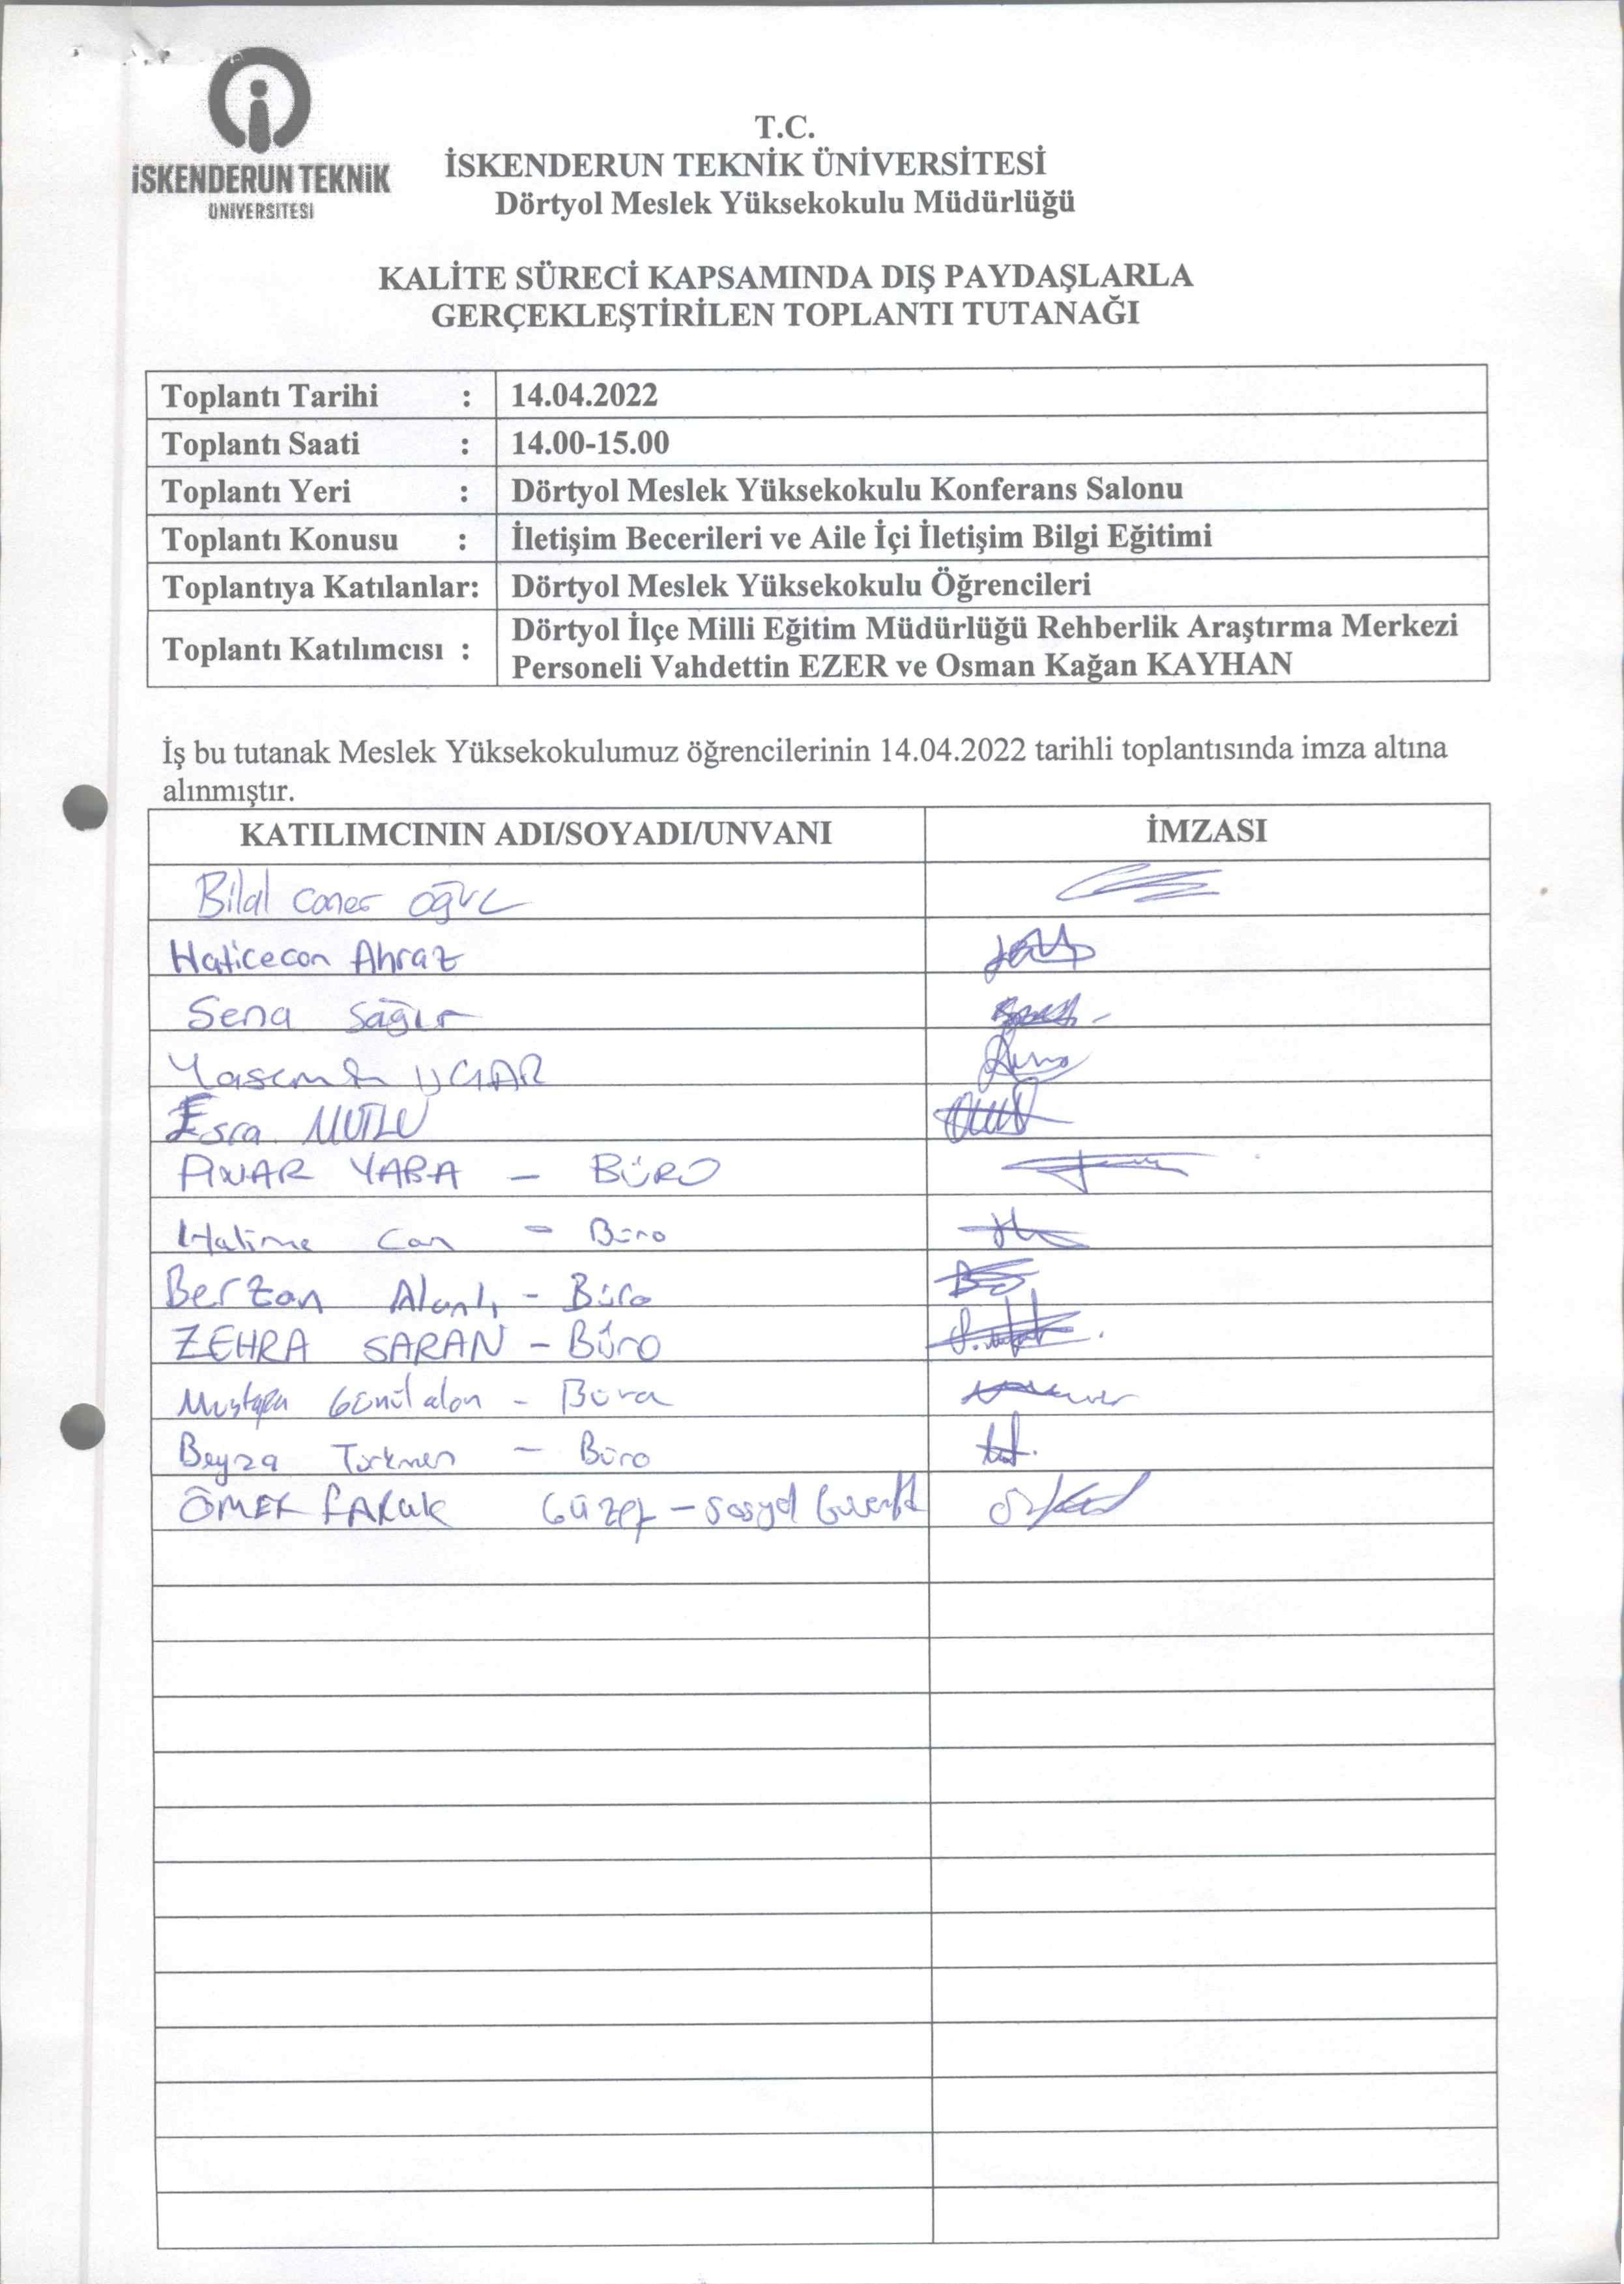 İSKENDERUN TEKNİK
ÜNİVERSİTESİ
T.C.
İSKENDERUN TEKNİK ÜNİVERSİTESİ
Dörtyol Meslek Yüksekokulu Müdürlüğü
KALİTE SÜRECİ KAPSAMINDA DIŞ PAYDAŞLARLA
GERÇEKLEŞTİRİLEN TOPLANTI TUTANAĞI
Toplantı Tarihi : 14.04.2022
Toplantı Saati : 14.00-15.00
Toplantı Yeri : Dörtyol Meslek Yüksekokulu Konferans Salonu
Toplantı Konusu : İletişim Becerileri ve Aile İçi İletişim Bilgi Eğitimi
Toplantıya Katılanlar: Dörtyol Meslek Yüksekokulu Öğrencileri
Toplantı Katılımcısı : Dörtyol İlçe Milli Eğitim Müdürlüğü Rehberlik Araştırma Merkezi
Personeli Vahdettin EZER ve Osman Kağan KAYHAN
İş bu tutanak Meslek Yüksekokulumuz öğrencilerinin 14.04.2022 tarihli toplantısında imza altına
alınmıştır.
KATILIMCININ ADI/SOYADI/UNVANI İMZASI
Bilal Caner
Haticecan Ahraz
Sena Sağır
Yasemin UÇAR
Esra MUTLU
PINAR YABA - BÜRO
Halime Can - Büro
Berzan Alanlı - Büro
ZEHRA SARAN - Büro
Mustafa Gönülalan - Büro
Beyza Türkmen - Büro
ÖMER FARuk Güzel - Sosyal